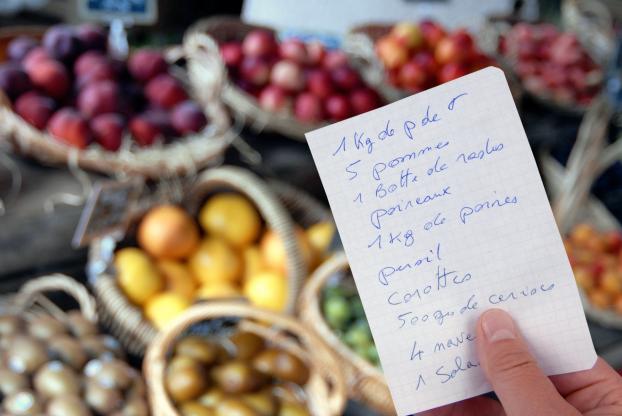 1 Kg de p de T
5 pommes
1 Botte de radis
poireaux
1 Kg de poires
persil
carottes
500gr de cerises
4 nave
1 Sala